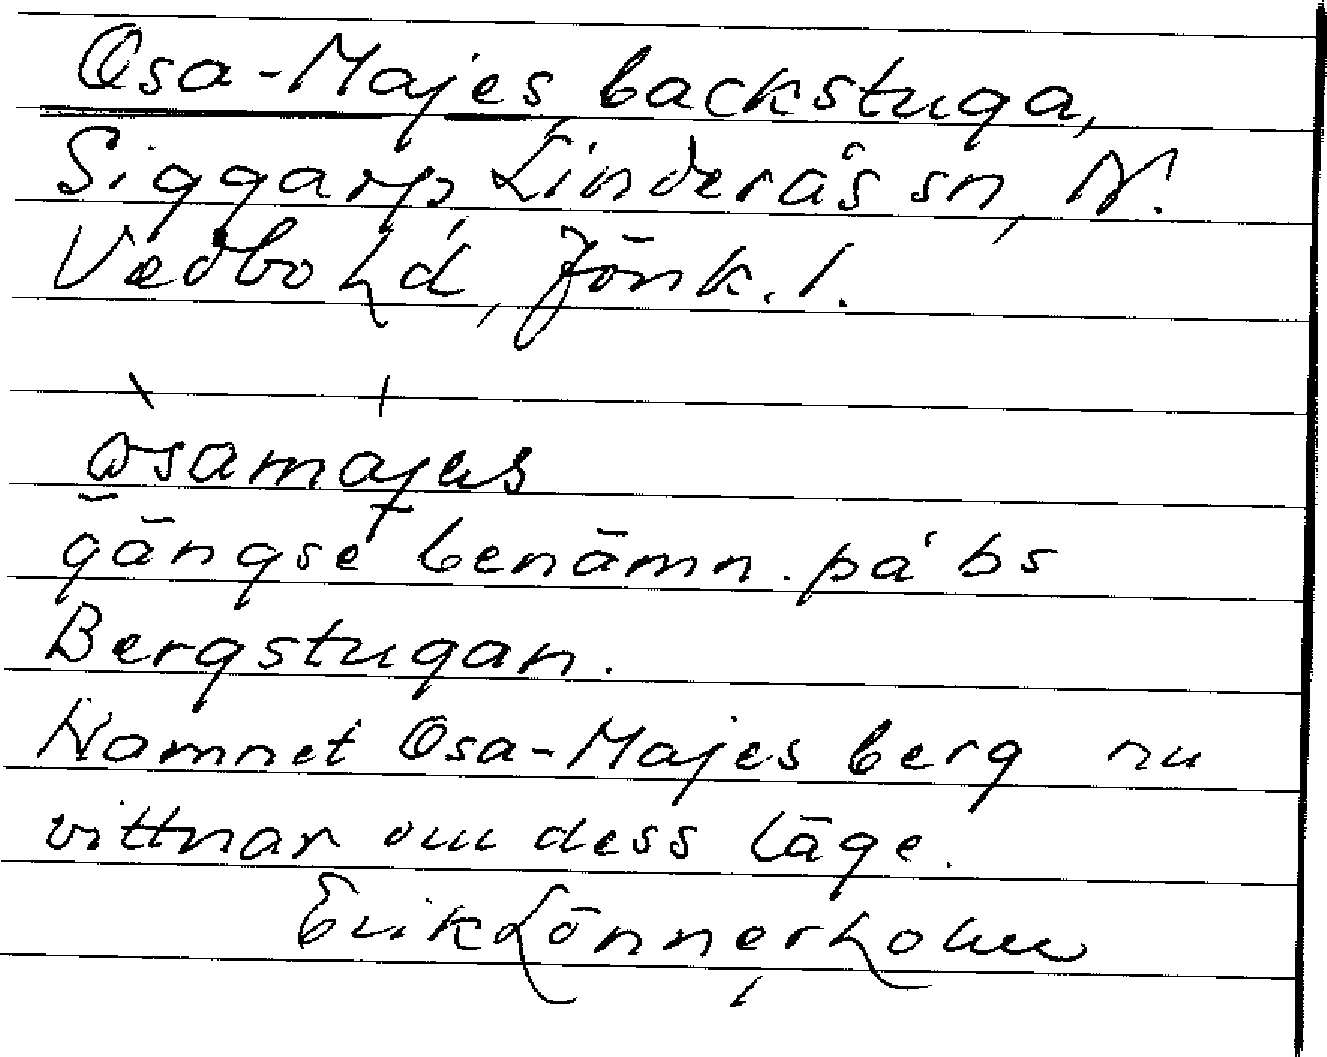 Osa-Majes backstuga,
Siggarp, Linderås sn, N.
Vedbo hd, Jönk. l.
osamajas
gängse benämn. på bs
Bergstugan.
Namnet Osa-Majes berg nu
vittnar om dess läge.
Erik Lönnerholm